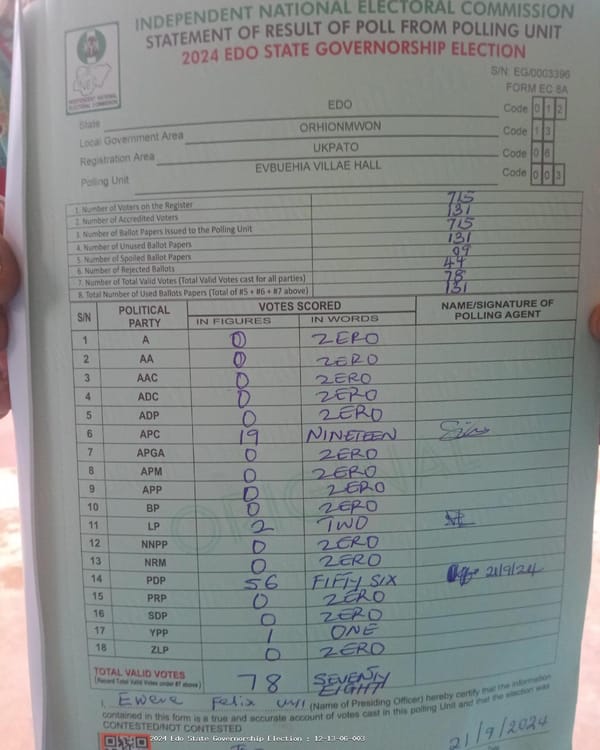 INDEPENDENT NATIONAL ELECTORAL COMMISSION
STATEMENT OF RESULT OF POLL FROM POLLING UNIT
2024 EDO STATE GOVERNORSHIP ELECTION
INDEPENDENT NATIONAL ELECTORAL COMMISSION
S/N: EG/0003396
FORM EC 8A
State EDO Code 0 1 2
Local Government Area ORHIONMWON Code 1 3
Registration Area UKPATO Code 0 6
Polling Unit EVBUEHIA VILLAE HALL Code 0 0 3
1. Number of Voters on the Register 715
2. Number of Accredited Voters 131
3. Number of Ballot Papers Issued to the Polling Unit 715
4. Number of Unused Ballot Papers 131
5. Number of Spoiled Ballot Papers 09
6. Number of Rejected Ballots 44
7. Number of Total Valid Votes (Total Valid Votes cast for all parties) 78
8. Total Number of Used Ballots Papers (Total of #5 + #6 + #7 above) 131
S/N POLITICAL PARTY VOTES SCORED NAME/SIGNATURE OF POLLING AGENT
IN FIGURES IN WORDS
1 A 0 ZERO
2 AA 0 ZERO
3 AAC 0 ZERO
4 ADC 0 ZERO
5 ADP 0 ZERO
6 APC 19 NINETEEN
7 APGA 0 ZERO
8 APM 0 ZERO
9 APP 0 ZERO
10 BP 0 ZERO
11 LP 2 TWO
12 NNPP 0 ZERO
13 NRM 0 ZERO
14 PDP 56 FIFTY SIX 21/9/24
15 PRP 0 ZERO
16 SDP 0 ZERO
17 YPP 1 ONE
18 ZLP 0 ZERO
TOTAL VALID VOTES 78 SEVENTY EIGHT
(Record Total Valid Votes under #7 above)
I, Felix (Name of Presiding Officer) hereby certify that the information
contained in this form is a true and accurate account of votes cast in this polling Unit and that the election was
CONTESTED/NOT CONTESTED
21/9/2024
2024 Edo State Governorship Election : 12-13-06-003